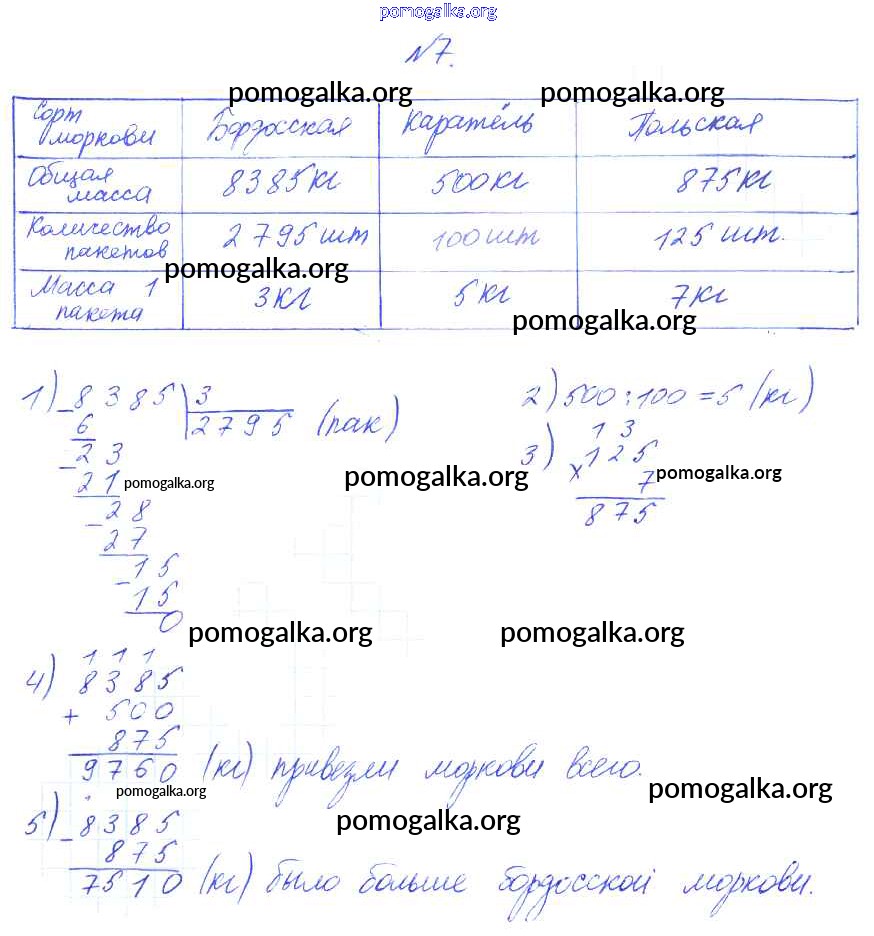 pomogalka.org
№7.
pomogalka.org pomogalka.org
Сорт моркови Бордосская Каратель Польская
Общая масса 8385кг 500кг 875кг
Количество пакетов 2795шт 100шт 125 шт.
pomogalka.org
Масса 1 пакета 3кг 5кг 7кг
pomogalka.org
1) - 8385 | 3
6 2795 (пак)
- 23
21
- 28
27
- 15
15
0
2) 500 : 100 = 5 (кг)
1 3
3) х 125
7
875
pomogalka.org pomogalka.org pomogalka.org
pomogalka.org pomogalka.org
1 1 1
4) 8385
+ 500
875
9760 (кг) привезли моркови всего.
pomogalka.org pomogalka.org
pomogalka.org
5) - 8385
875
7510 (кг) было больше бордосской моркови.